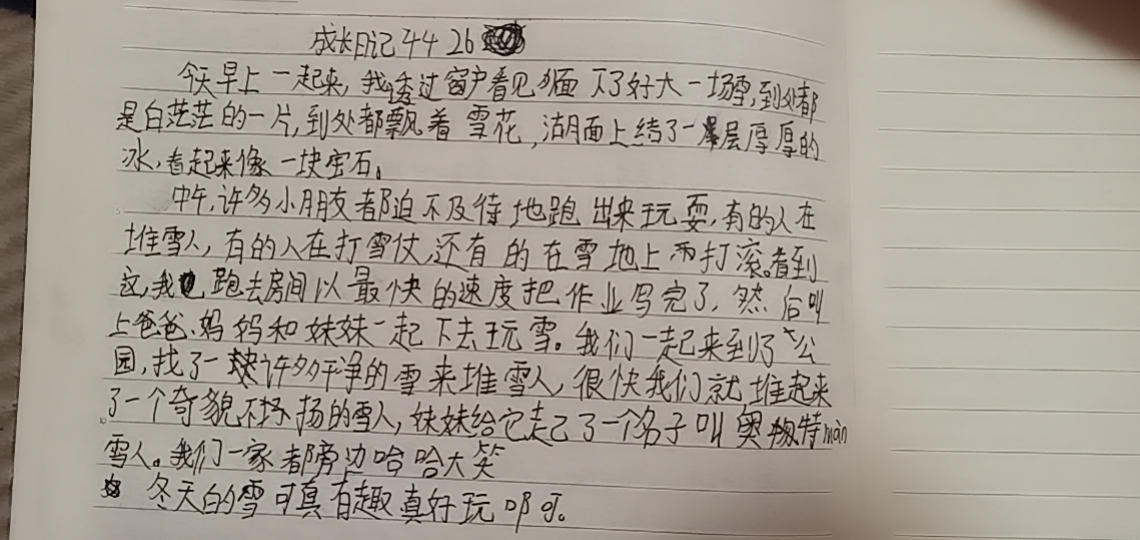 成长日记 44 26
今天早上一起来,我透过窗户看见外面下了好大一场雪,到处都
是白茫茫的一片,到处都飘着雪花,湖面上结了一层厚厚的
冰,看起来像一块宝石。
中午,许多小朋友都迫不及待地跑出来玩耍,有的人在
堆雪人,有的人在打雪仗,还有的在雪地上打滚。看到
这,我跑去房间以最快的速度把作业写完了,然后叫
上爸爸、妈妈和妹妹一起下去玩雪。我们一起来到了公
园,找了一块许多干净的雪来堆雪人,很快我们就堆起来
了一个奇貌不扬的雪人,妹妹给它起了一个名子叫奥特màn
雪人。我们一家都旁边哈哈大笑
冬天的雪可真有趣真好玩啊。